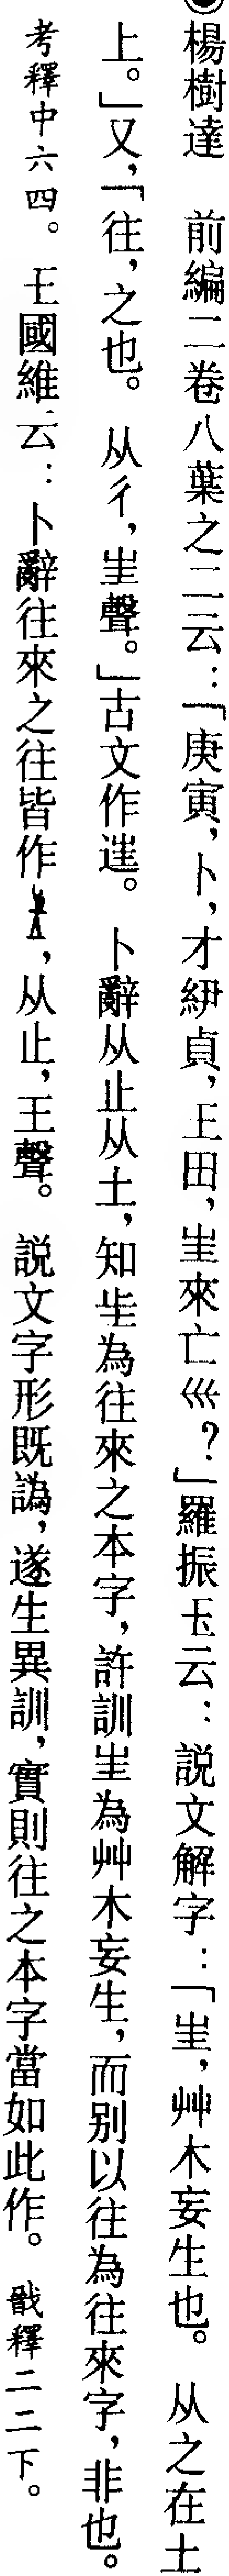 ●楊樹達　前編二卷八葉之二云：「庚寅，卜，才𦀚貞，王田，㞷來亡𡿧？」羅振玉云：説文解字：「㞷，艸木妄生也。从之在土
上。」又，「往，之也。从彳，㞷聲。」古文作𨓹。卜辭从止从土，知𡉚為往來之本字，許訓㞷為艸木妄生，而別以往為往來字，非也。
考釋中六四。王國維云：卜辭往來之往皆作，从止，王聲。説文字形既譌，遂生異訓，實則往之本字當如此作。戩釋二二下。